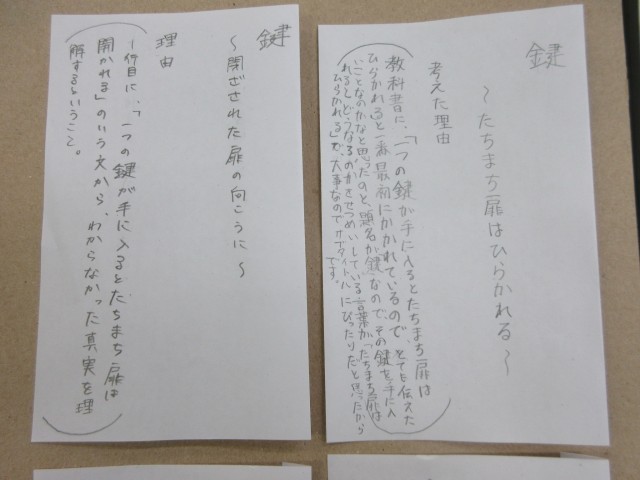 鍵
～たちまち扉はひらかれる～
考えた理由
教科書に、「一つの鍵が手に入るとたちまち扉は
ひらかれると一番最初にかかれているので、とても伝えた
いことなのかなと思ったのと、題名が「鍵」なので、その鍵を手に入
れるとどうなるのかをせつめいしている言葉が「たちまち扉は
ひらかれる」で、大事なのでサブタイトルにぴったりだと思ったから
です。
鍵
～閉ざされた扉の向こうに～
理由
1行目に、「一つの鍵が手に入るとたちまち扉は
開かれる」のいう文から、わからなかった真実を理
解するということ。